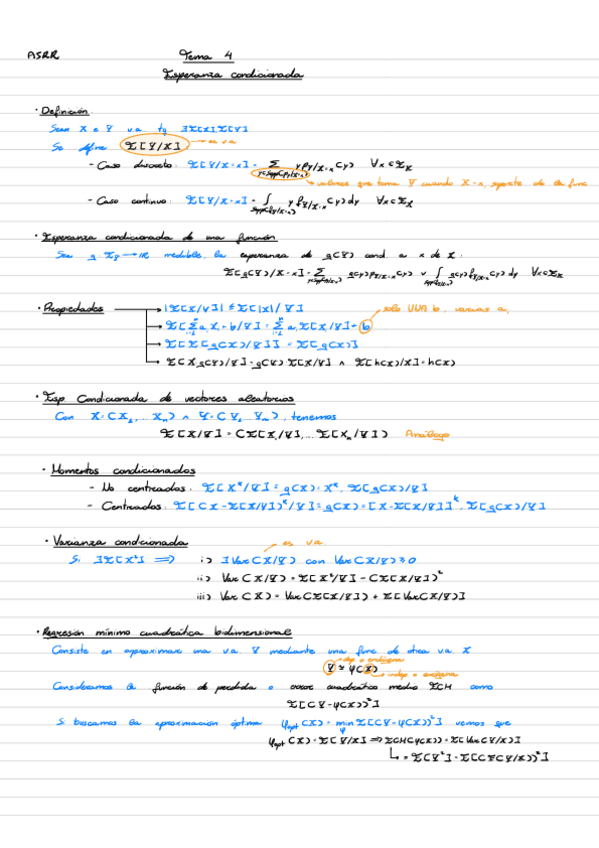 ASRR Tema 4
Esperanza condicionada
· Definición.
Sean X e Y v.a. tq ∃E[X], E[Y]
Se define E[Y/X] → es va
- Caso discreto: E[Y/X=x] = Σ y p_{Y/X=x}(y) ∀x∈E_X
→ valores que toma Y cuando X=x, soporte de la func
- Caso continuo: E[Y/X=x] = ∫ y f_{Y/X=x}(y) dy ∀x∈E_X
· Esperanza condicionada de una función
Sea g: E_Y → ℝ medible, la esperanza de g(Y) cond. a x de X:
E[g(Y)/X=x] = Σ g(y) p_{Y/X=x}(y) ∨ ∫ g(y) f_{Y/X=x}(y) dy ∀x∈E_X
· Propiedades → |E[X/Y]| ≤ E[|X|/Y] solo UNA b, varias a_i
→ E[Σ a_i X_i + b/Y] = Σ a_i E[X_i/Y] + b
→ E[E[g(X)/Y]] = E[g(X)]
→ E[X g(Y)/Y] = g(Y) E[X/Y] ∧ E[h(X)/X] = h(X)
· Esp. Condicionada de vectores aleatorios
Con X=(X_1, ... X_n) ∧ Y=(Y_1, Y_m), tenemos
E[X/Y] = (E[X_1/Y], ... E[X_n/Y]) Análogo
· Momentos condicionados
- No centrados: E[X^k/Y] = g(X)=X^k, E[g(X)/Y]
- Centrados: E[(X-E[X/Y])^k/Y] = g(X)=[X-E[X/Y]]^k, E[g(X)/Y]
· Varianza condicionada → es va
Si ∃E[X²] ⟹ i) ∃Var(X/Y) con Var(X/Y) ≥ 0
ii) Var(X/Y) = E[X²/Y] - (E[X/Y])²
iii) Var(X) = Var(E[X/Y]) + E[Var(X/Y)]
· Regresión mínimo cuadrática bidimensional
Consiste en aproximar una va. Y mediante una func de otra va. X
→ dep o endógena
Y ≈ φ(X)
→ indep o exógena
Consideramos la función de perdida o error cuadrático medio ECM como
E[(Y-φ(X))²]
Si buscamos la aproximación óptima φ_opt(X) = min_φ E[(Y-φ(X))²] vemos que
φ_opt(X) = E[Y/X] ⟹ ECM(φ(X)) = E[Var(Y/X)]
↳ = E[Y²] - E[(E(Y/X))²]